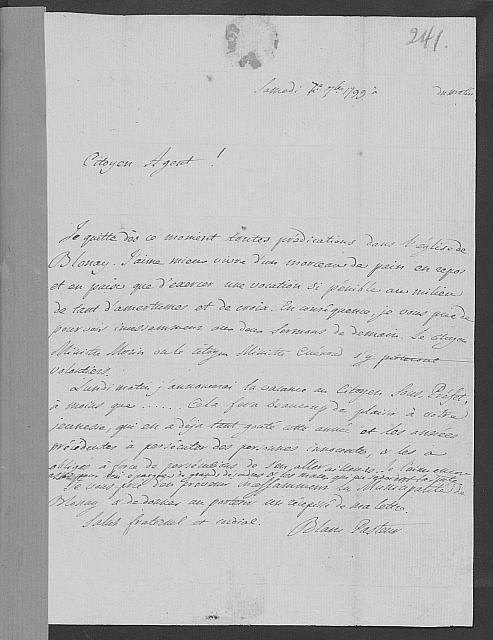 241.
Samedi 7e 7bre 1799 à du matin
Citoyen Agent !
Je quitte dès ce moment toutes prédications dans l'église de
Blonay. J'aime mieux vivre d'un morceau de pain en repos
et en paix que d'exercer une vocation si pénible au milieu
de tant d'amertumes et de croix. En conséquence, je vous prie de
pourvoir incessamment aux deux sermons de demain. Le citoyen
Ministre Morin ou le citoyen Ministre Cuénod s'y
volontiers.
Lundi matin j'annoncerai la vacance au Citoyen Sous-Préfet,
à moins que ...... Cela fera beaucoup de plaisir à votre
jeunesse, qui en a déja tant gouté cette année et les années
précédentes à persécuter des personnes innocentes, & les a
obligés à force de persécutions de s'en aller ailleurs. Je
Je vous prie d'en prévenir incessamment la Municipalité de
Blonay & de donner au porteur un récépissé de ma lettre.
Salut fraternel et cordial. Blanc Pasteur